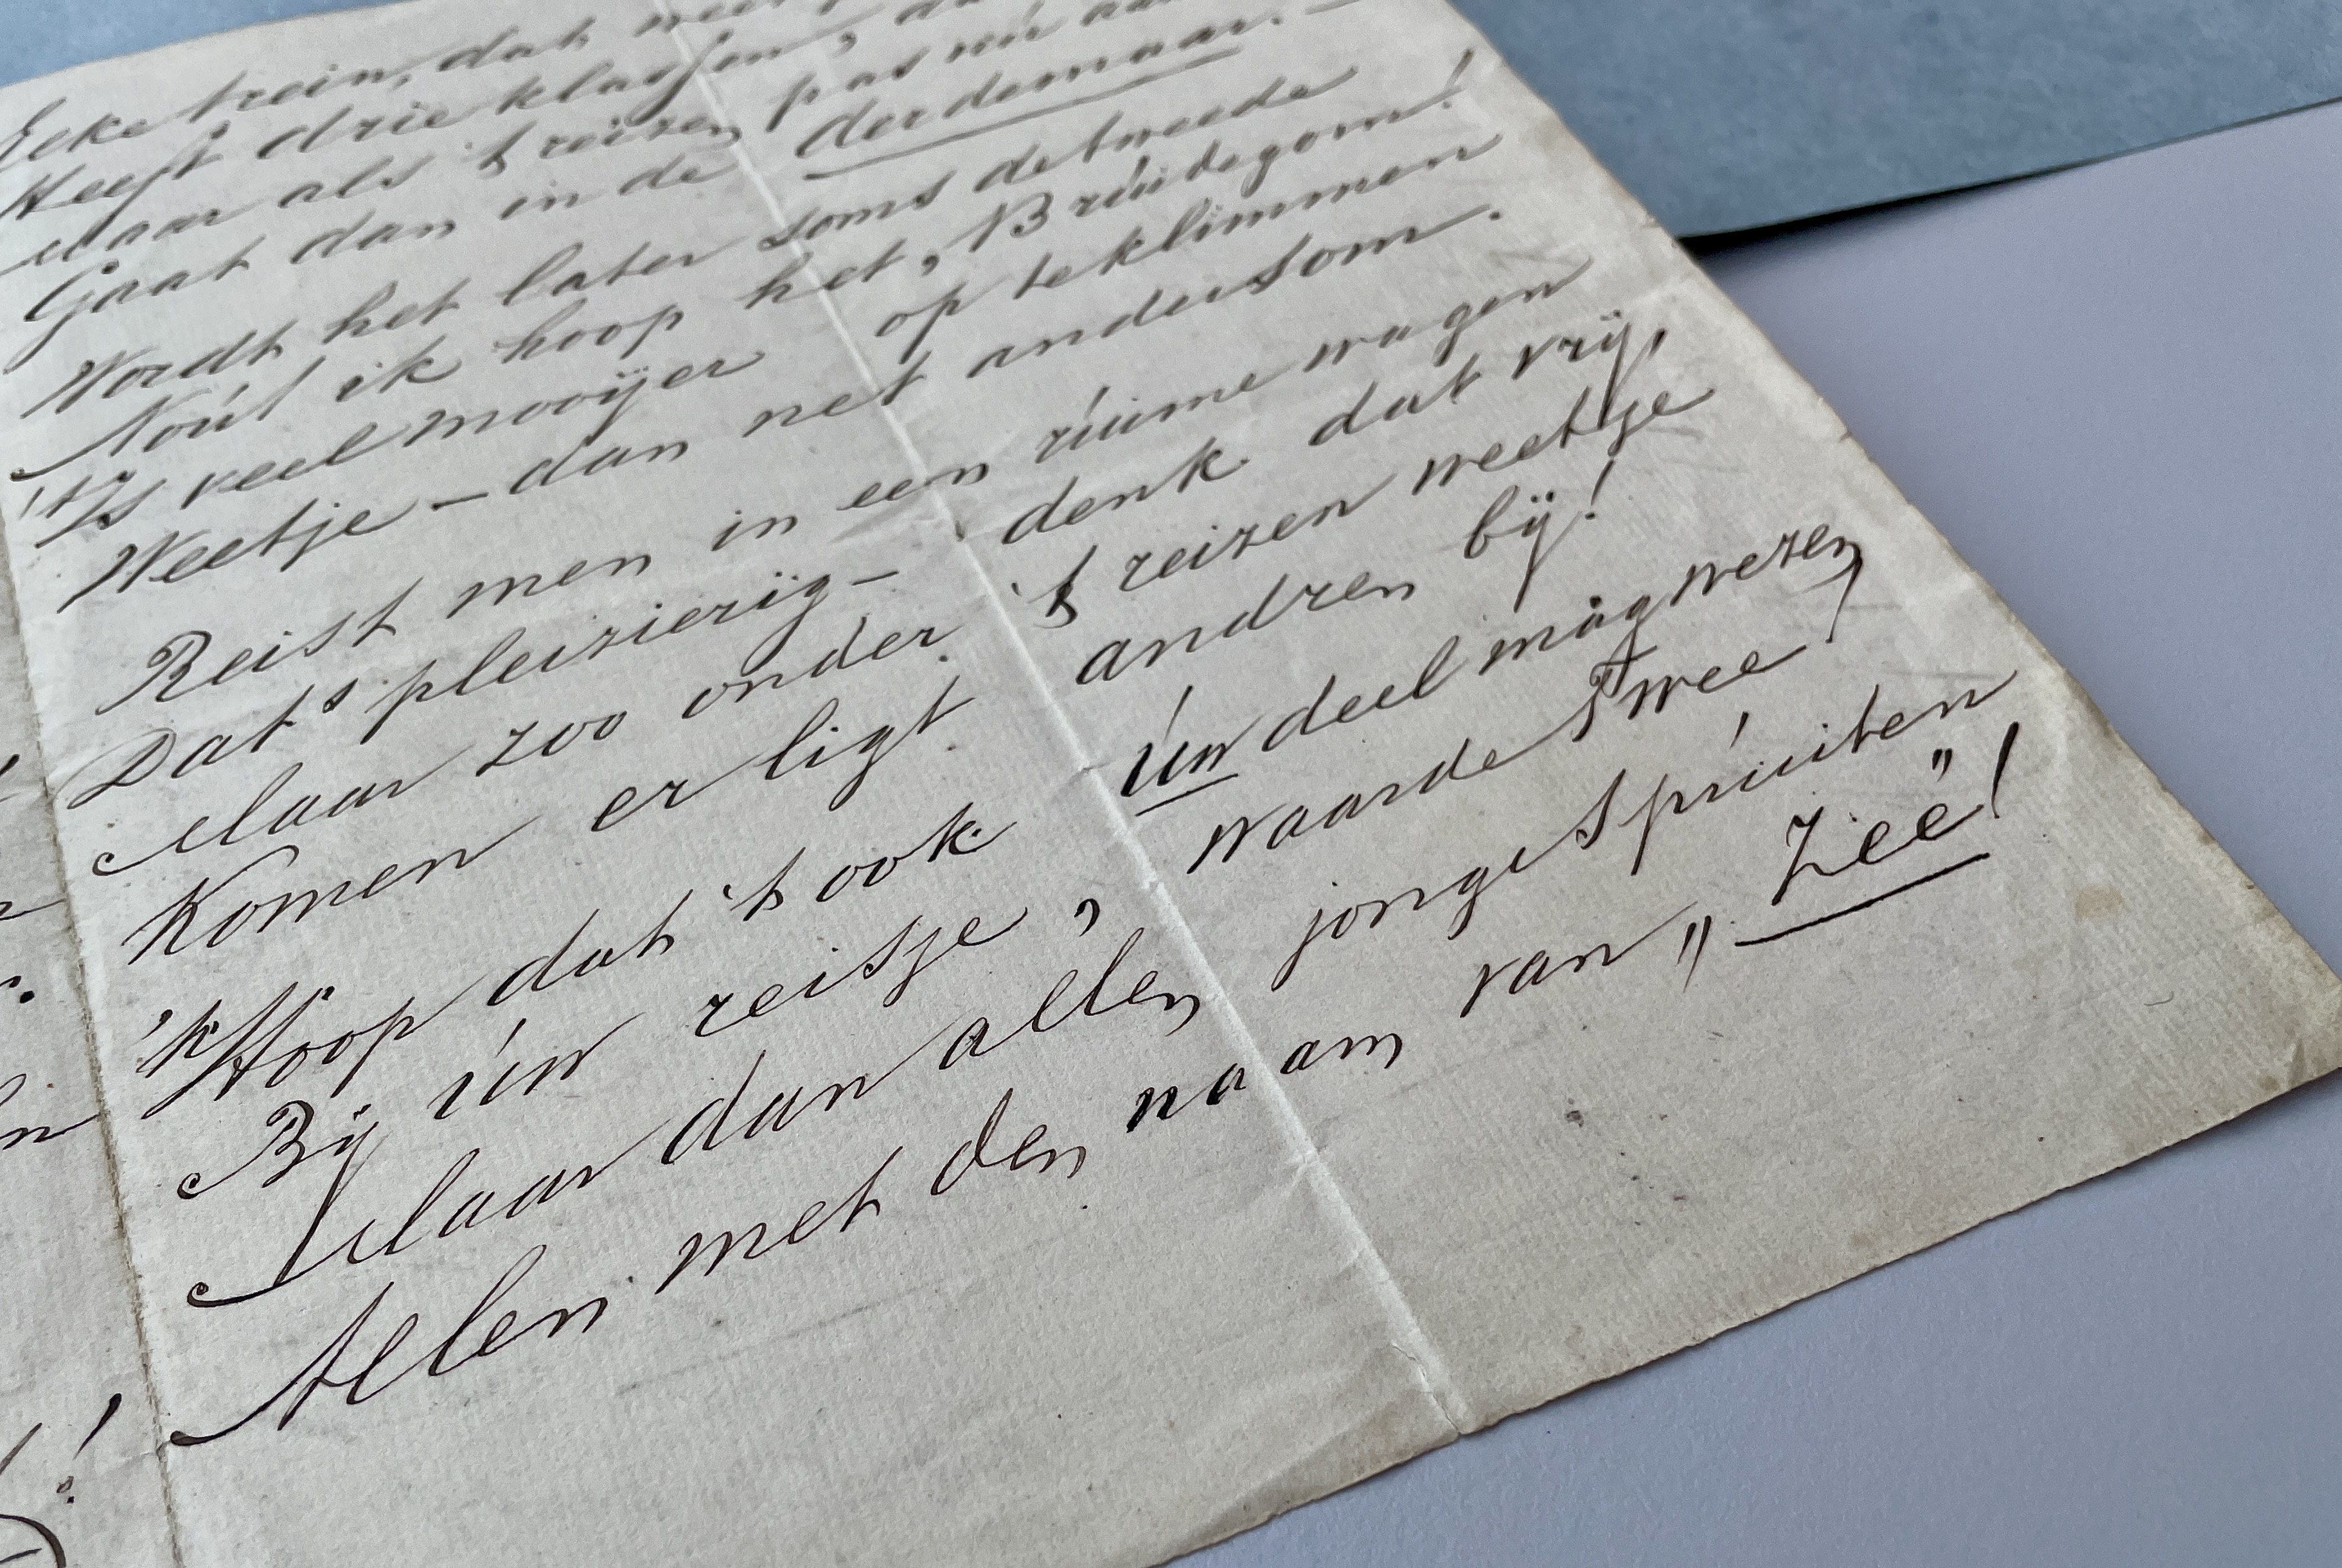 Elke trein, dat weet
Heeft drie klassen, da
Maar als 't reizen pas nú aan
Gaat dan in de derdemaar. —
Wordt het later soms de tweede
Noú! ik hoop het, Brúidegom!
't Is veel mooijer op te klimmen
Weetje — dan net andersom.
Reist men in een rúime wagen
Dat's pleizierig — denk dat vrij,
Maar zoo onder 't reizen weetje
Komen er ligt andren bij!
'k Hoop dat 't ook úw deel màg wezen
Bij úw reisje, waarde Twee!
Maar dan allen jonge Sprúiten
Allen met den naam van „Zeë"!